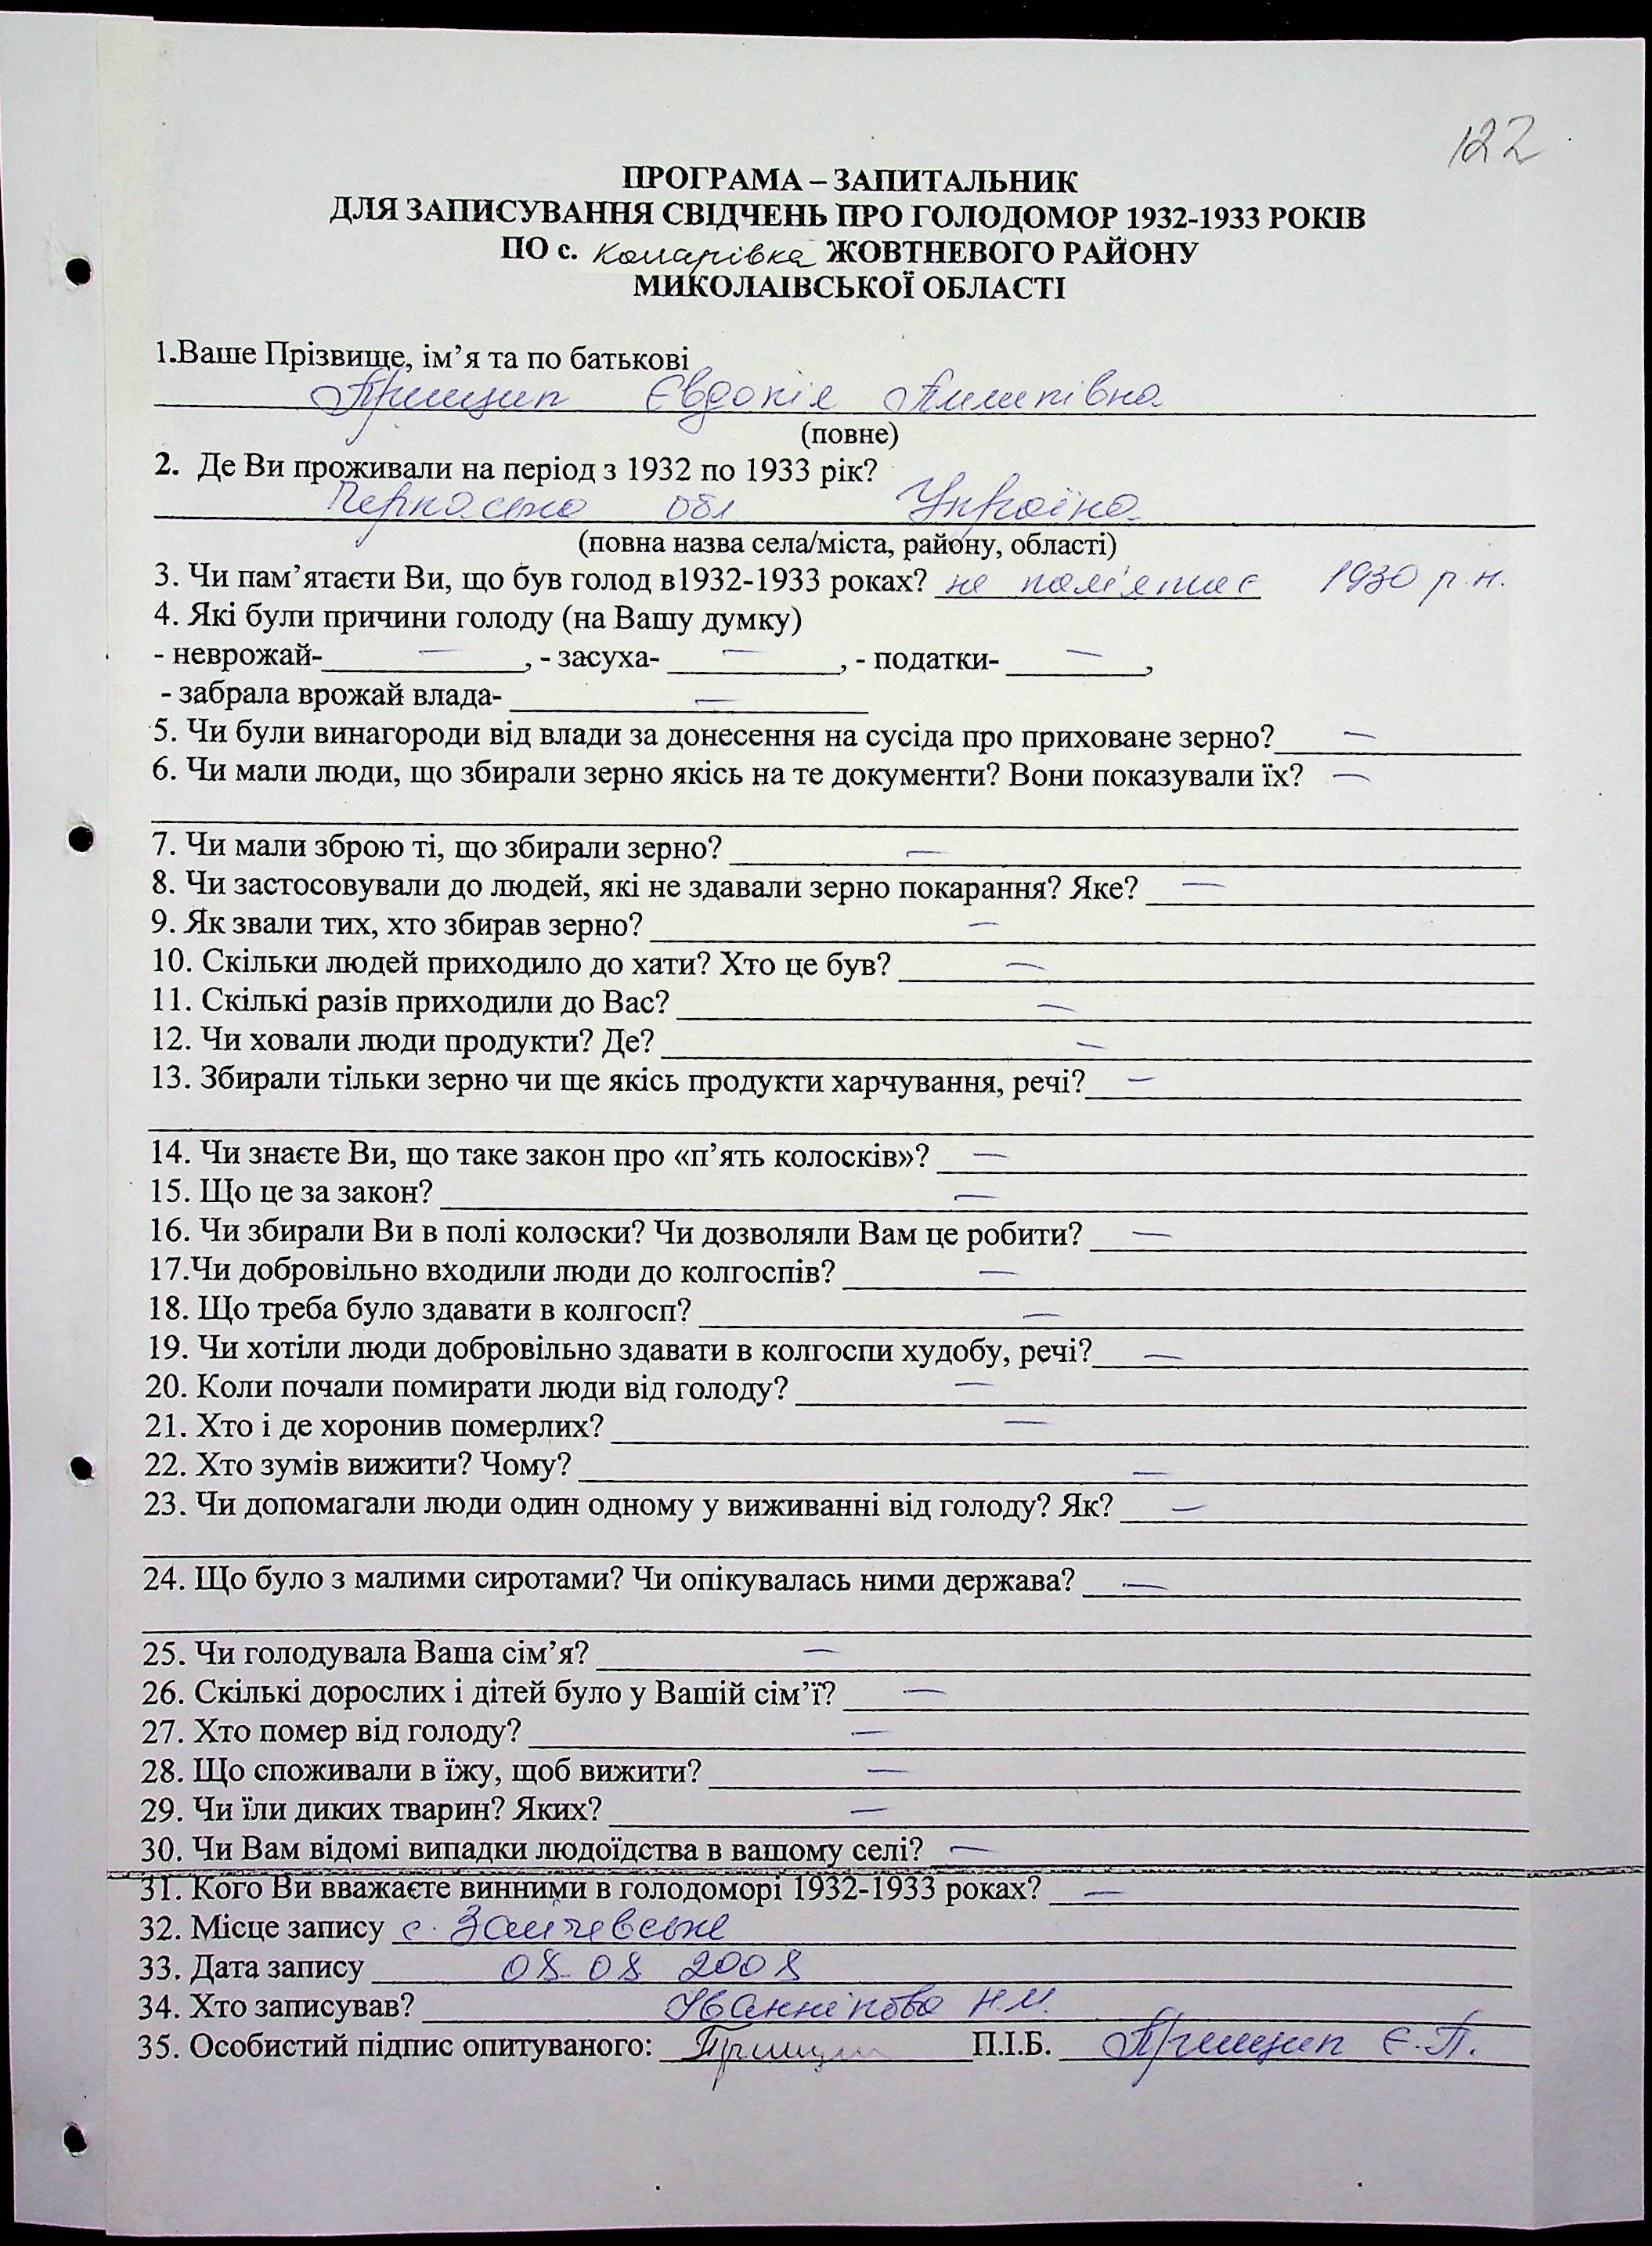 122
ПРОГРАМА – ЗАПИТАЛЬНИК
ДЛЯ ЗАПИСУВАННЯ СВІДЧЕНЬ ПРО ГОЛОДОМОР 1932-1933 РОКІВ
ПО с. Комарівка ЖОВТНЕВОГО РАЙОНУ
МИКОЛАІВСЬКОЇ ОБЛАСТІ
1.Ваше Прізвище, ім’я та по батькові
Прищип Євдокія Пилипівна
(повне)
2. Де Ви проживали на період з 1932 по 1933 рік?
Черкаська обл Україна
(повна назва села/міста, району, області)
3. Чи пам’ятаєти Ви, що був голод в1932-1933 роках? не пам'ятає 1930 р.н.
4. Які були причини голоду (на Вашу думку)
- неврожай- —, - засуха- —, - податки- —,
- забрала врожай влада- —
5. Чи були винагороди від влади за донесення на сусіда про приховане зерно? —
6. Чи мали люди, що збирали зерно якісь на те документи? Вони показували їх? —
7. Чи мали зброю ті, що збирали зерно? —
8. Чи застосовували до людей, які не здавали зерно покарання? Яке? —
9. Як звали тих, хто збирав зерно? —
10. Скільки людей приходило до хати? Хто це був? —
11. Скількі разів приходили до Вас? —
12. Чи ховали люди продукти? Де? —
13. Збирали тільки зерно чи ще якісь продукти харчування, речі? —
14. Чи знаєте Ви, що таке закон про «п’ять колосків»? —
15. Що це за закон? —
16. Чи збирали Ви в полі колоски? Чи дозволяли Вам це робити? —
17.Чи добровільно входили люди до колгоспів? —
18. Що треба було здавати в колгосп? —
19. Чи хотіли люди добровільно здавати в колгоспи худобу, речі? —
20. Коли почали помирати люди від голоду? —
21. Хто і де хоронив померлих? —
22. Хто зумів вижити? Чому? —
23. Чи допомагали люди один одному у виживанні від голоду? Як? —
24. Що було з малими сиротами? Чи опікувалась ними держава? —
25. Чи голодувала Ваша сім’я? —
26. Скількі дорослих і дітей було у Вашій сім’ї? —
27. Хто помер від голоду? —
28. Що споживали в їжу, щоб вижити? —
29. Чи їли диких тварин? Яких? —
30. Чи Вам відомі випадки людоїдства в вашому селі? —
31. Кого Ви вважаєте винними в голодоморі 1932-1933 роках? —
32. Місце запису с. Зайчевське
33. Дата запису 08.08 2008
34. Хто записував? Іваннікова Н.М.
35. Особистий підпис опитуваного: Прищип П.І.Б. Прищип Є.П.